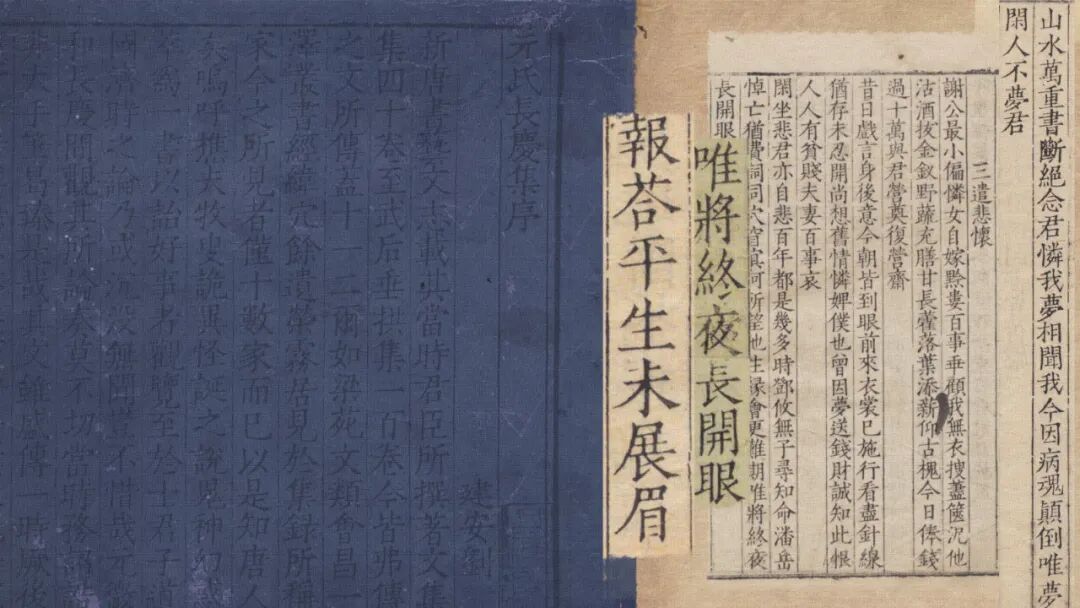 山水萬重書斷絕念君憐我夢相聞我今因病魂顛倒唯夢
閑人不夢君
三遣悲懷
謝公最小偏憐女自嫁黔婁百事垂顧我無衣搜藎篋况他
沽酒拔金釵野蔬充膳甘長藿落葉添薪仰古槐今日俸錢
過十萬與君營奠復營齋
昔日戲言身後意今朝皆到眼前來衣裳已施行看盡針線
猶存未忍開尚想舊情憐婢僕也曾因夢送錢財誠知此恨
人人有貧賤夫妻百事哀
閑坐悲君亦自悲百年都是幾多時鄧攸無子尋知命潘岳
悼亡猶費詞同穴窅冥何所望也生緣會更難期唯將終夜
長開眼
唯將終夜長開眼
報荅平生未展眉
元氏長慶集序
建安劉
新唐書藝文志載其當時君臣所撰著文集
集四十卷至武后垂拱集一百卷今皆弗傳
之人所傳蓋一二爾如梁苑文類
澤叢書經緯穴餘遺榮霧居見於集録所稱
家今之所見者僅十數家而已以是知唐人
矣嗚呼樵夫牧叟詭異怪誕之說鬼神幻惑
書以詒好事者觀覽至於士君子道
國濟時之論乃或沉没無聞豈不惜哉元微
和長慶間觀其所論奏
盛傳一時厥後